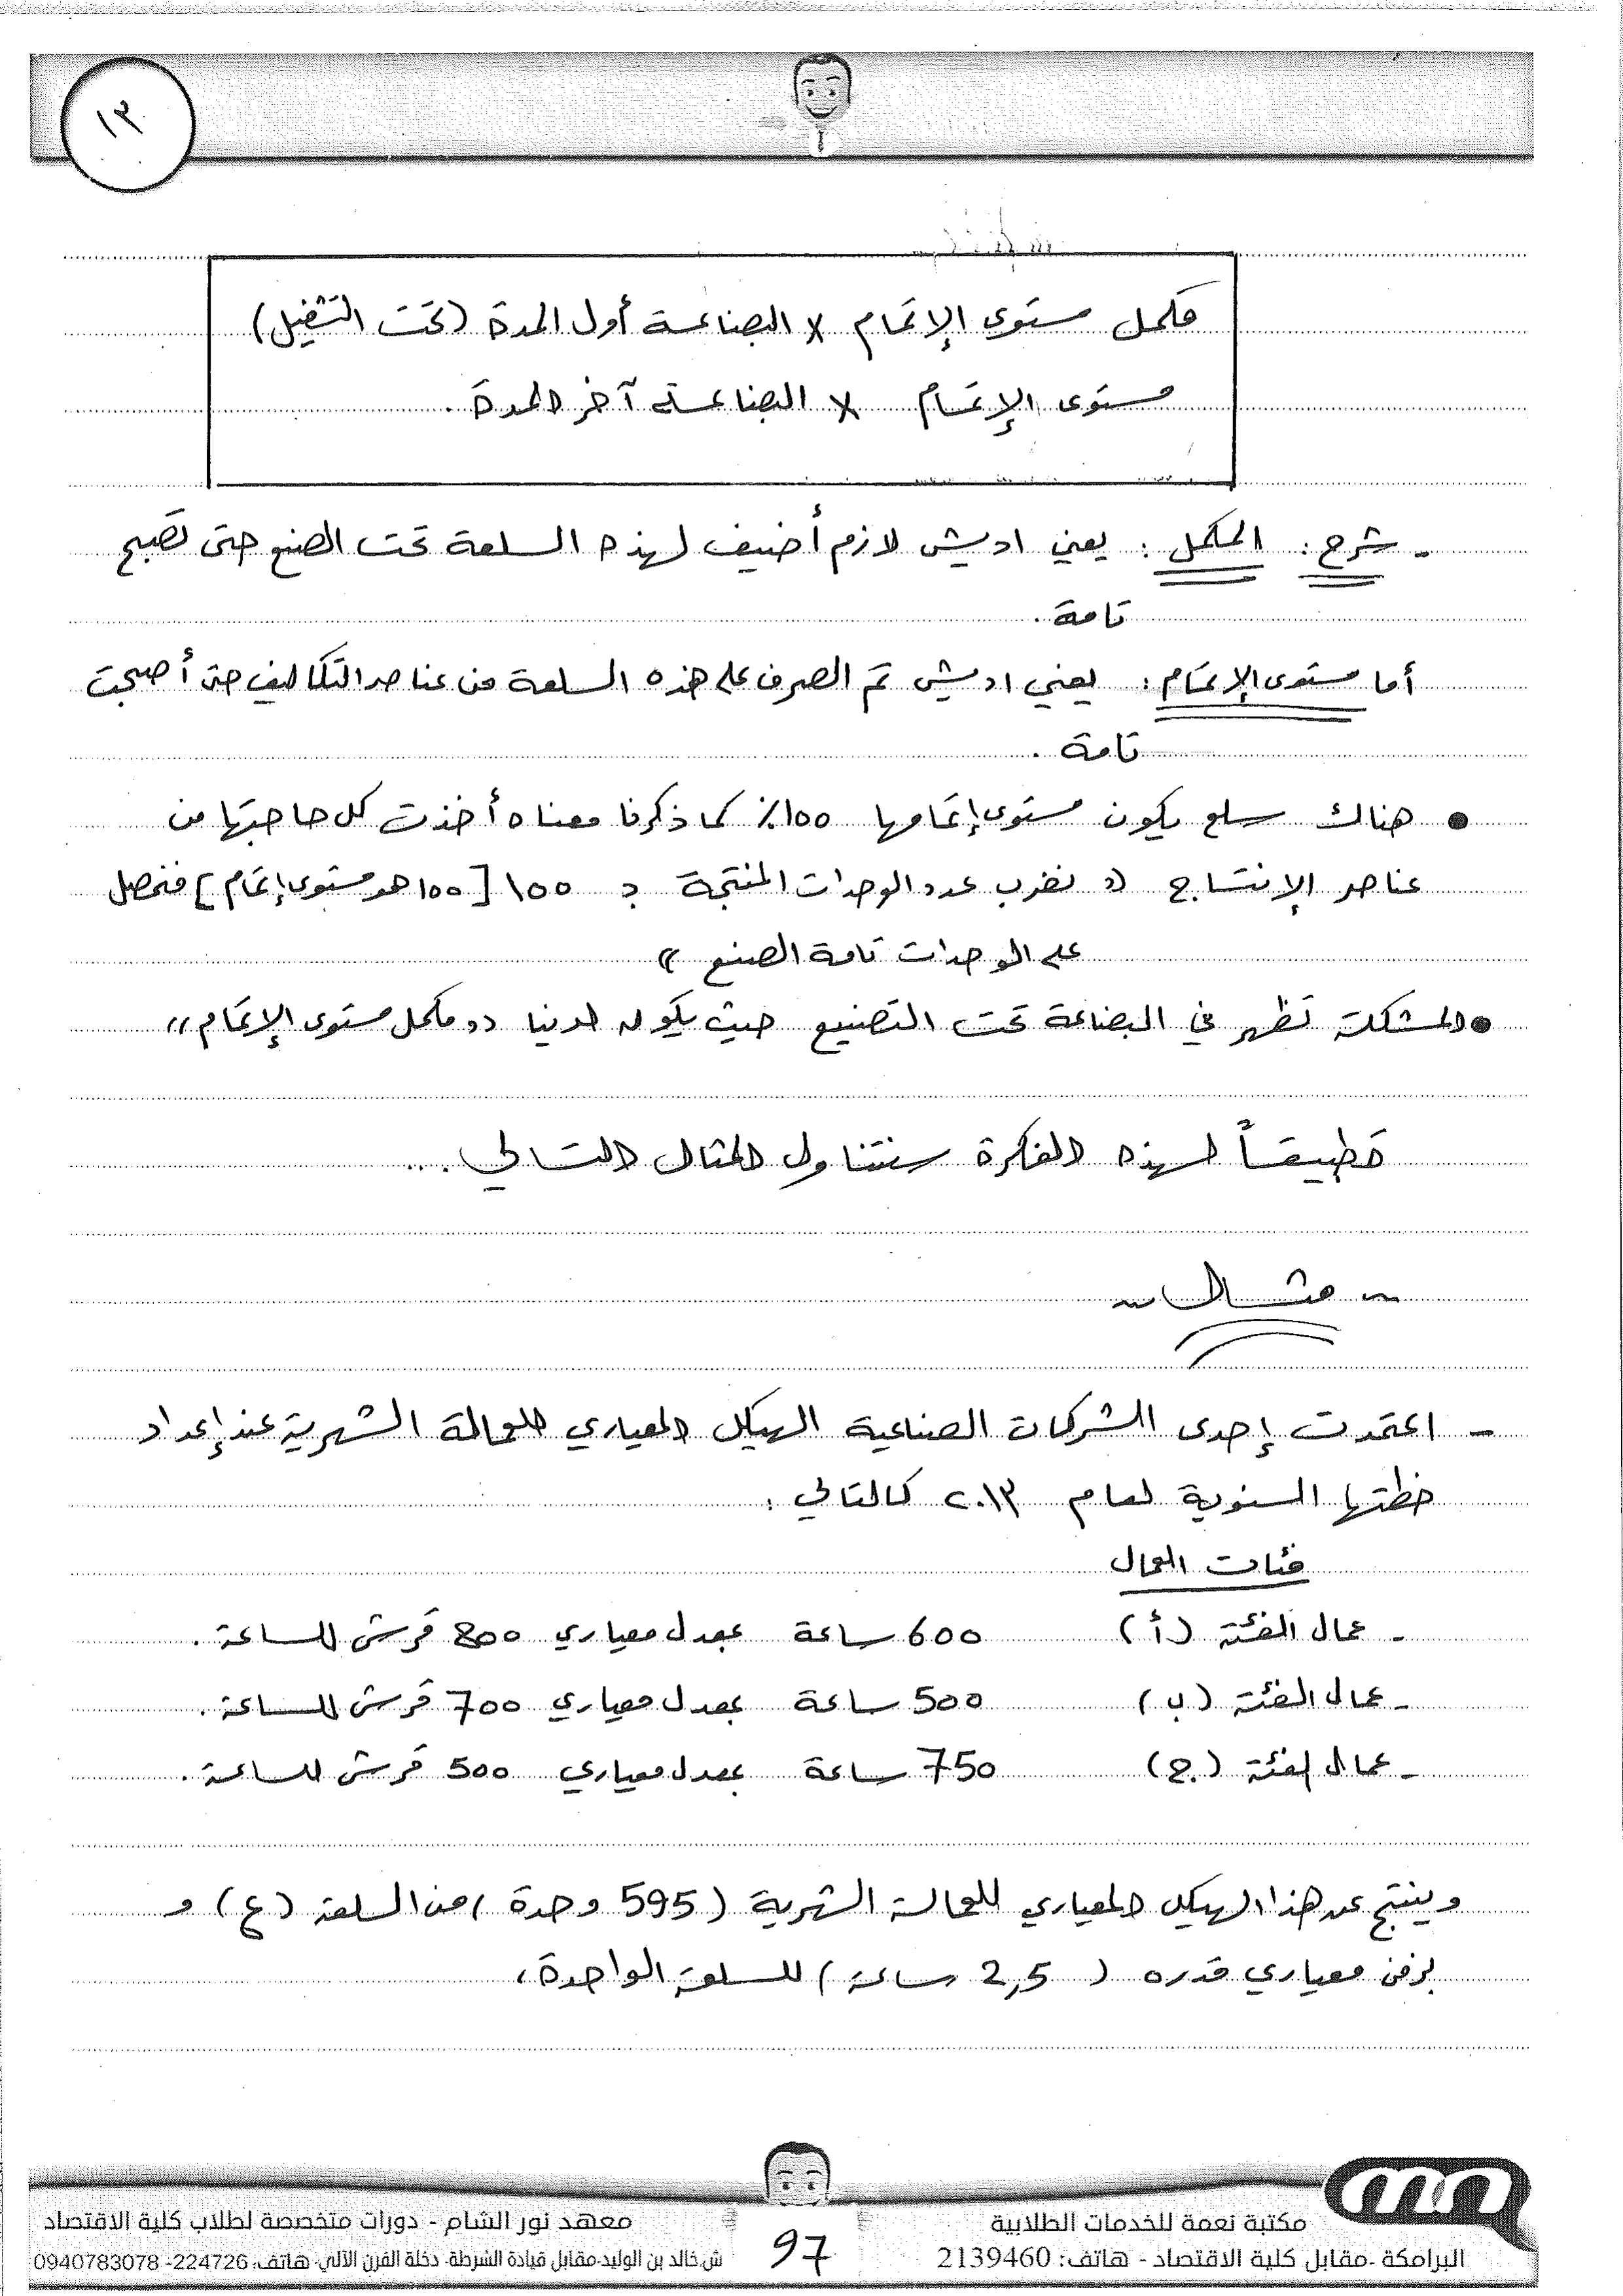 ١٣
مكمل مستوى الإتمام × البضاعة أول المدة (تحت التشغيل)
مستوى الإتمام × البضاعة آخر المدة .
- شرح : المكمل : يعني اديش لازم أضيف لهذه السلعة تحت الصنع حتى تصبح
تامة .
أما مستوى الإتمام : يعني اديش تم الصرف على هذه السلعة من عناصر التكاليف حتى أصبحت
تامة .
● هناك سلع يكون مستوى إتمامها 100٪ كما ذكرنا معناه أخذت كل حاجتها من
عناصر الإنتاج (( نضرب عدد الوحدات المنتجة بـ 100 [100 هو مستوى إتمام] فنحصل
على الوحدات تامة الصنع ))
● المشكلة تظهر في البضاعة تحت التصنيع حيث يكون لدينا ,, مكمل مستوى الإتمام ,,
تطبيقاً لهذه الفكرة سنتناول المثال التالي ....
~ مثال ~
- اعتمدت إحدى الشركات الصناعية الهيكل المعياري للعمالة الشهرية عند إعداد
خطتها السنوية لعام ٢٠١٣ كالتالي :
فئات العمال
- عمال الفئة (أ) 600 ساعة بمعدل معياري 800 قرش للساعة .
- عمال الفئة (ب) 500 ساعة بمعدل معياري 700 قرش للساعة .
- عمال الفئة (ج) 750 ساعة بمعدل معياري 500 قرش للساعة .
وينتج عن هذا الهيكل المعياري للعمالة الشهرية (595 وحدة) من السلعة (ع) و
بزمن معياري قدره (2,5 ساعة) للسلعة الواحدة ،
مكتبة نعمة للخدمات الطلابية
البرامكة -مقابل كلية الاقتصاد - هاتف: 2139460
97
معهد نور الشام - دورات متخصصة لطلاب كلية الاقتصاد
ش.خالد بن الوليد-مقابل قيادة الشرطة- دخلة الفرن الآلي- هاتف: 224726- 0940783078